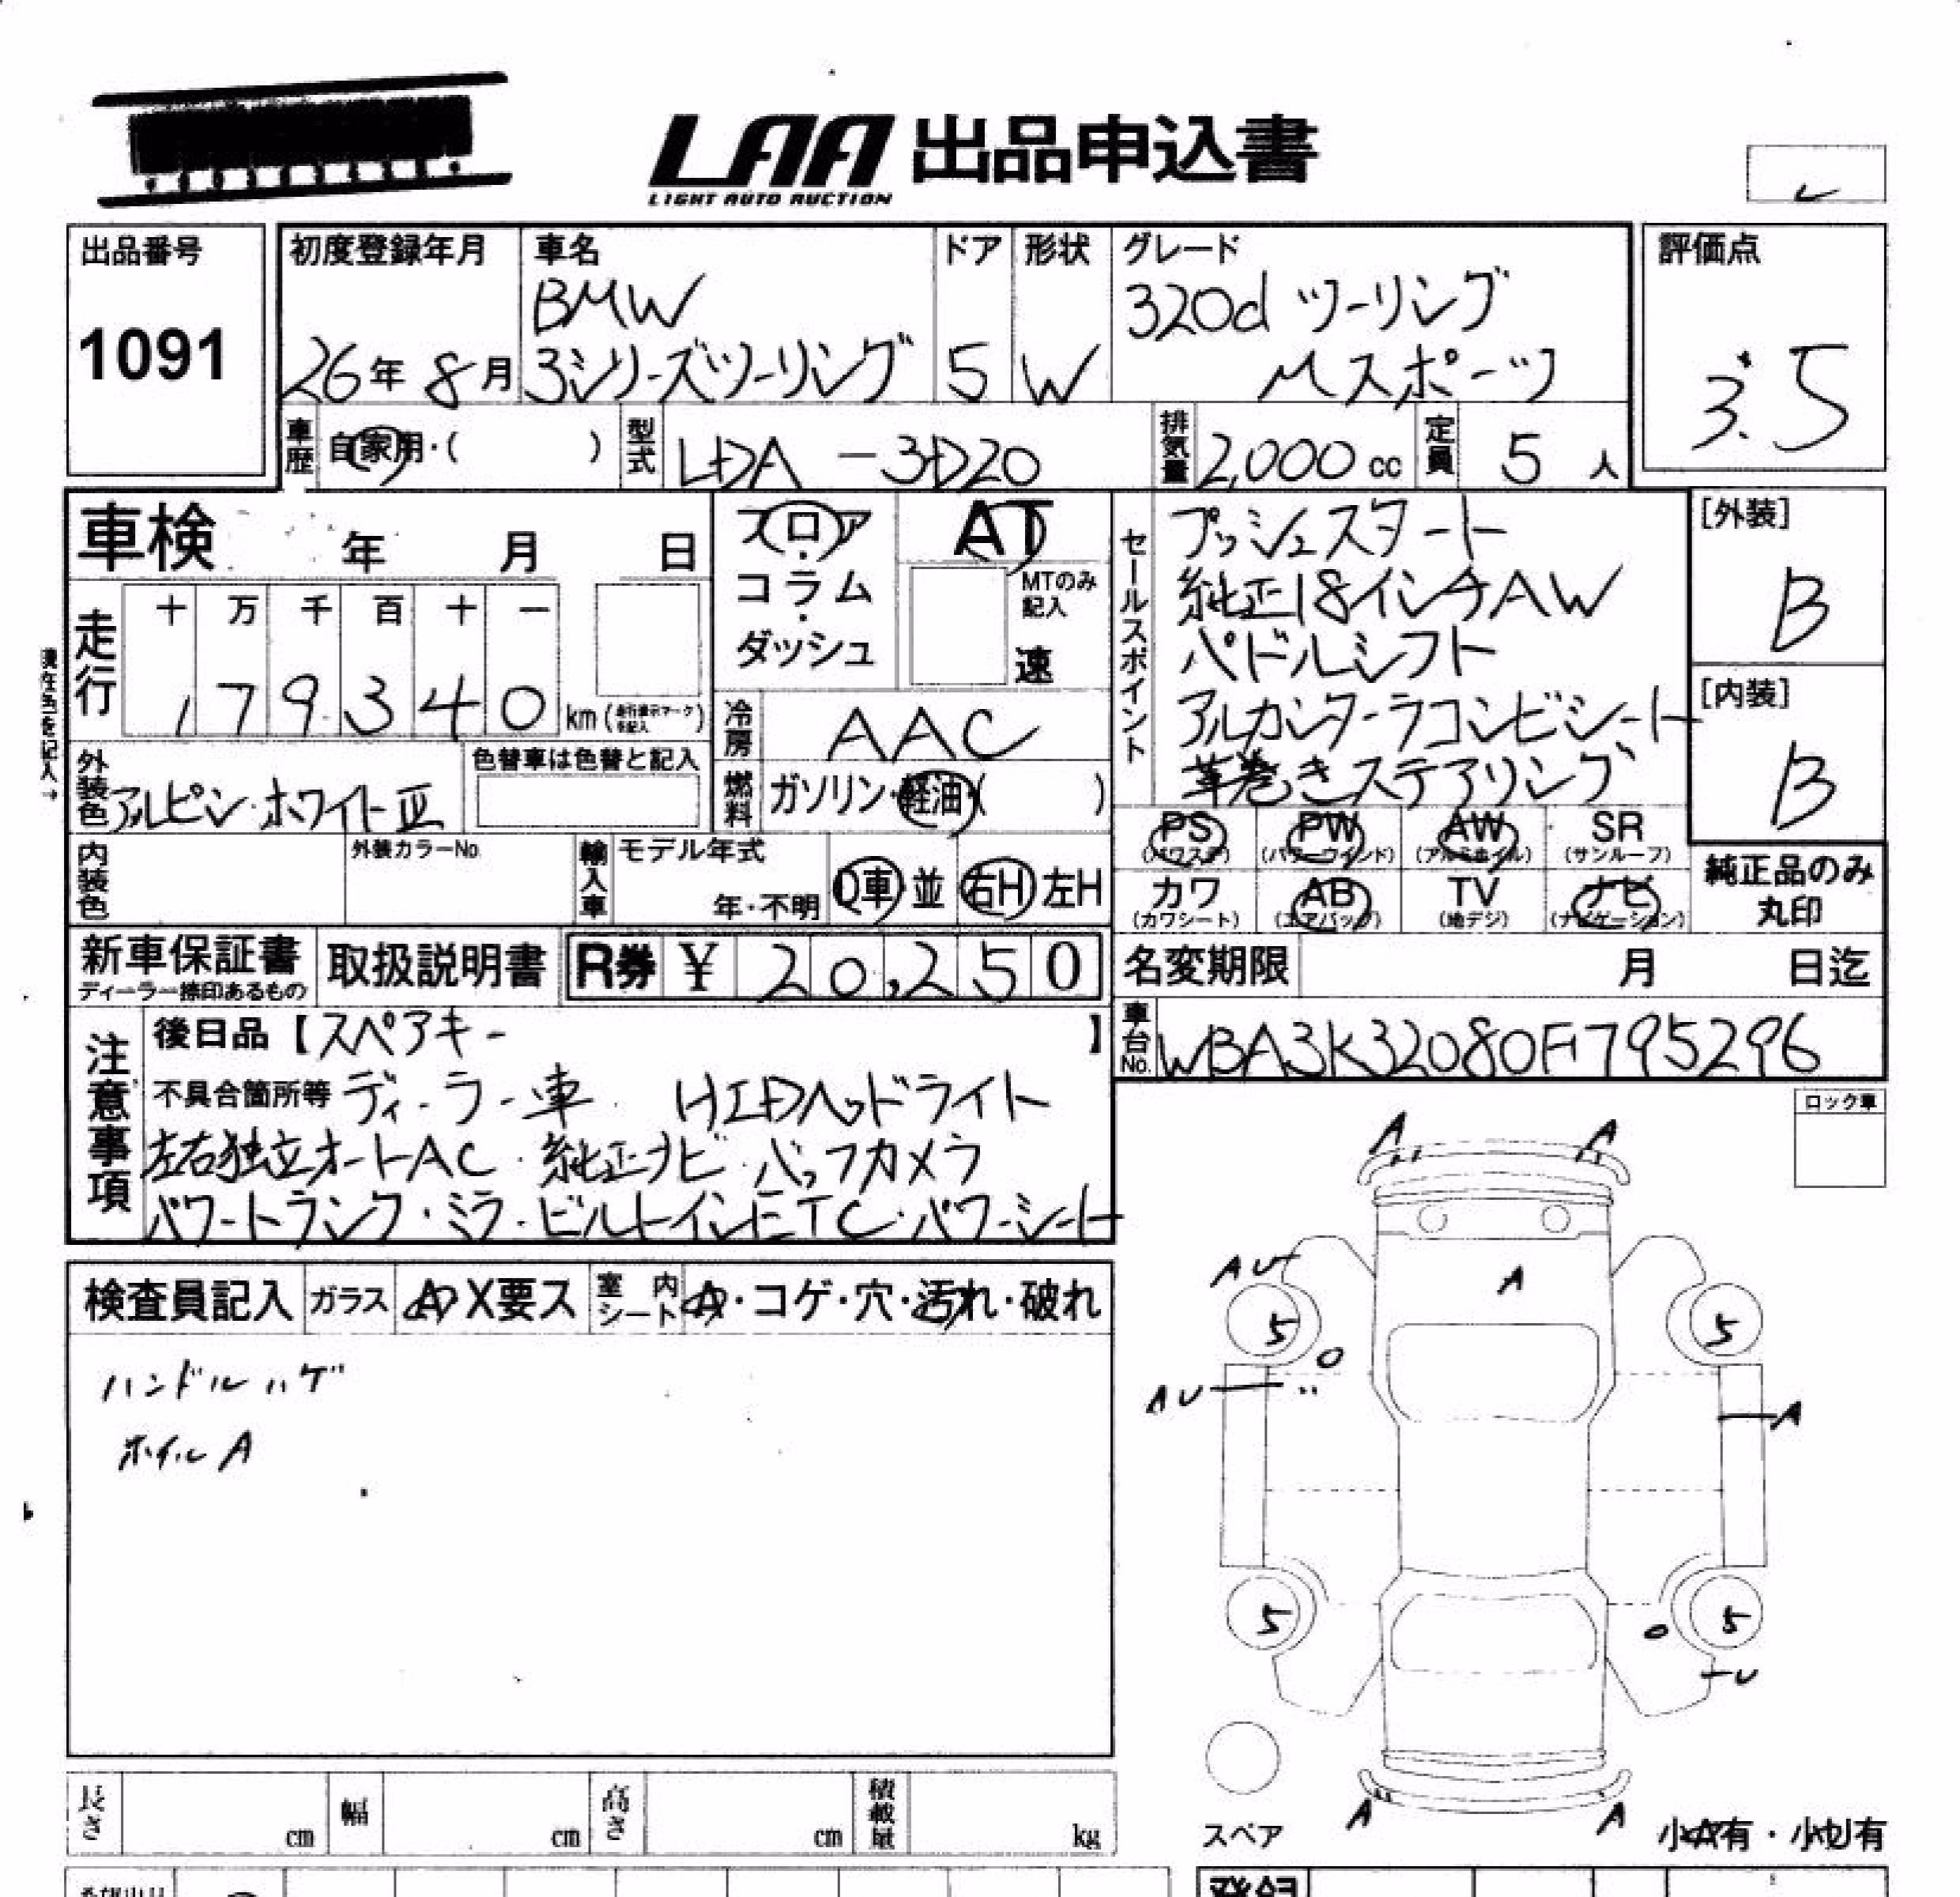 LAA 出品申込書
LIGHT AUTO AUCTION
出品番号
1091
初度登録年月
26年 8月
車名
BMW
3シリーズツーリング
ドア
5
形状
W
グレード
320d ツーリング
Mスポーツ
評価点
3.5
車歴
自家用・( )
型式
LDA-3D20
排気量
2,000 cc
定員
5 人
車検 年 月 日
走行
十 万 千 百 十 一
1 7 9 3 4 0 km
フロア
コラム
ダッシュ
AT
MTのみ
記入
速
冷房
AAC
燃料
ガソリン・軽油・( )
外装色
アルピン・ホワイトⅢ
色替車は色替と記入
内装色
外装カラーNo.
輸入車
モデル年式
年・不明
D車・並
右H・左H
セールスポイント
プッシュスタート
純正18インチAW
パドルシフト
アルカンターラコンビシート
革巻きステアリング
[外装]
B
[内装]
B
PS
(パワステ)
PW
(パワーウインド)
AW
(アルミホイル)
SR
(サンルーフ)
カワ
(カワシート)
AB
(エアバッグ)
TV
(地デジ)
ナビ
(ナビゲーション)
純正品のみ
丸印
新車保証書
ディーラー捺印あるもの
取扱説明書
R券 ¥ 20,250
名変期限 月 日迄
車台No.
WBA3K32080F795296
注意事項
後日品【スペアキー】
不具合箇所等 ディーラー車 HIDヘッドライト
左右独立オートAC・純正ナビ・バックカメラ
パワートランク・ミラー・ビルトインETC・パワーシート
検査員記入
ガラス
A・X要ス
室内
シート
A・コゲ・穴・汚れ・破れ
ハンドルハゲ
ホイルA
ロック車
A
A
AU
A
5
5
AU
A
5
5
U
A
A
スペア
小A有・小U有
長さ cm
幅 cm
高さ cm
積載量 kg